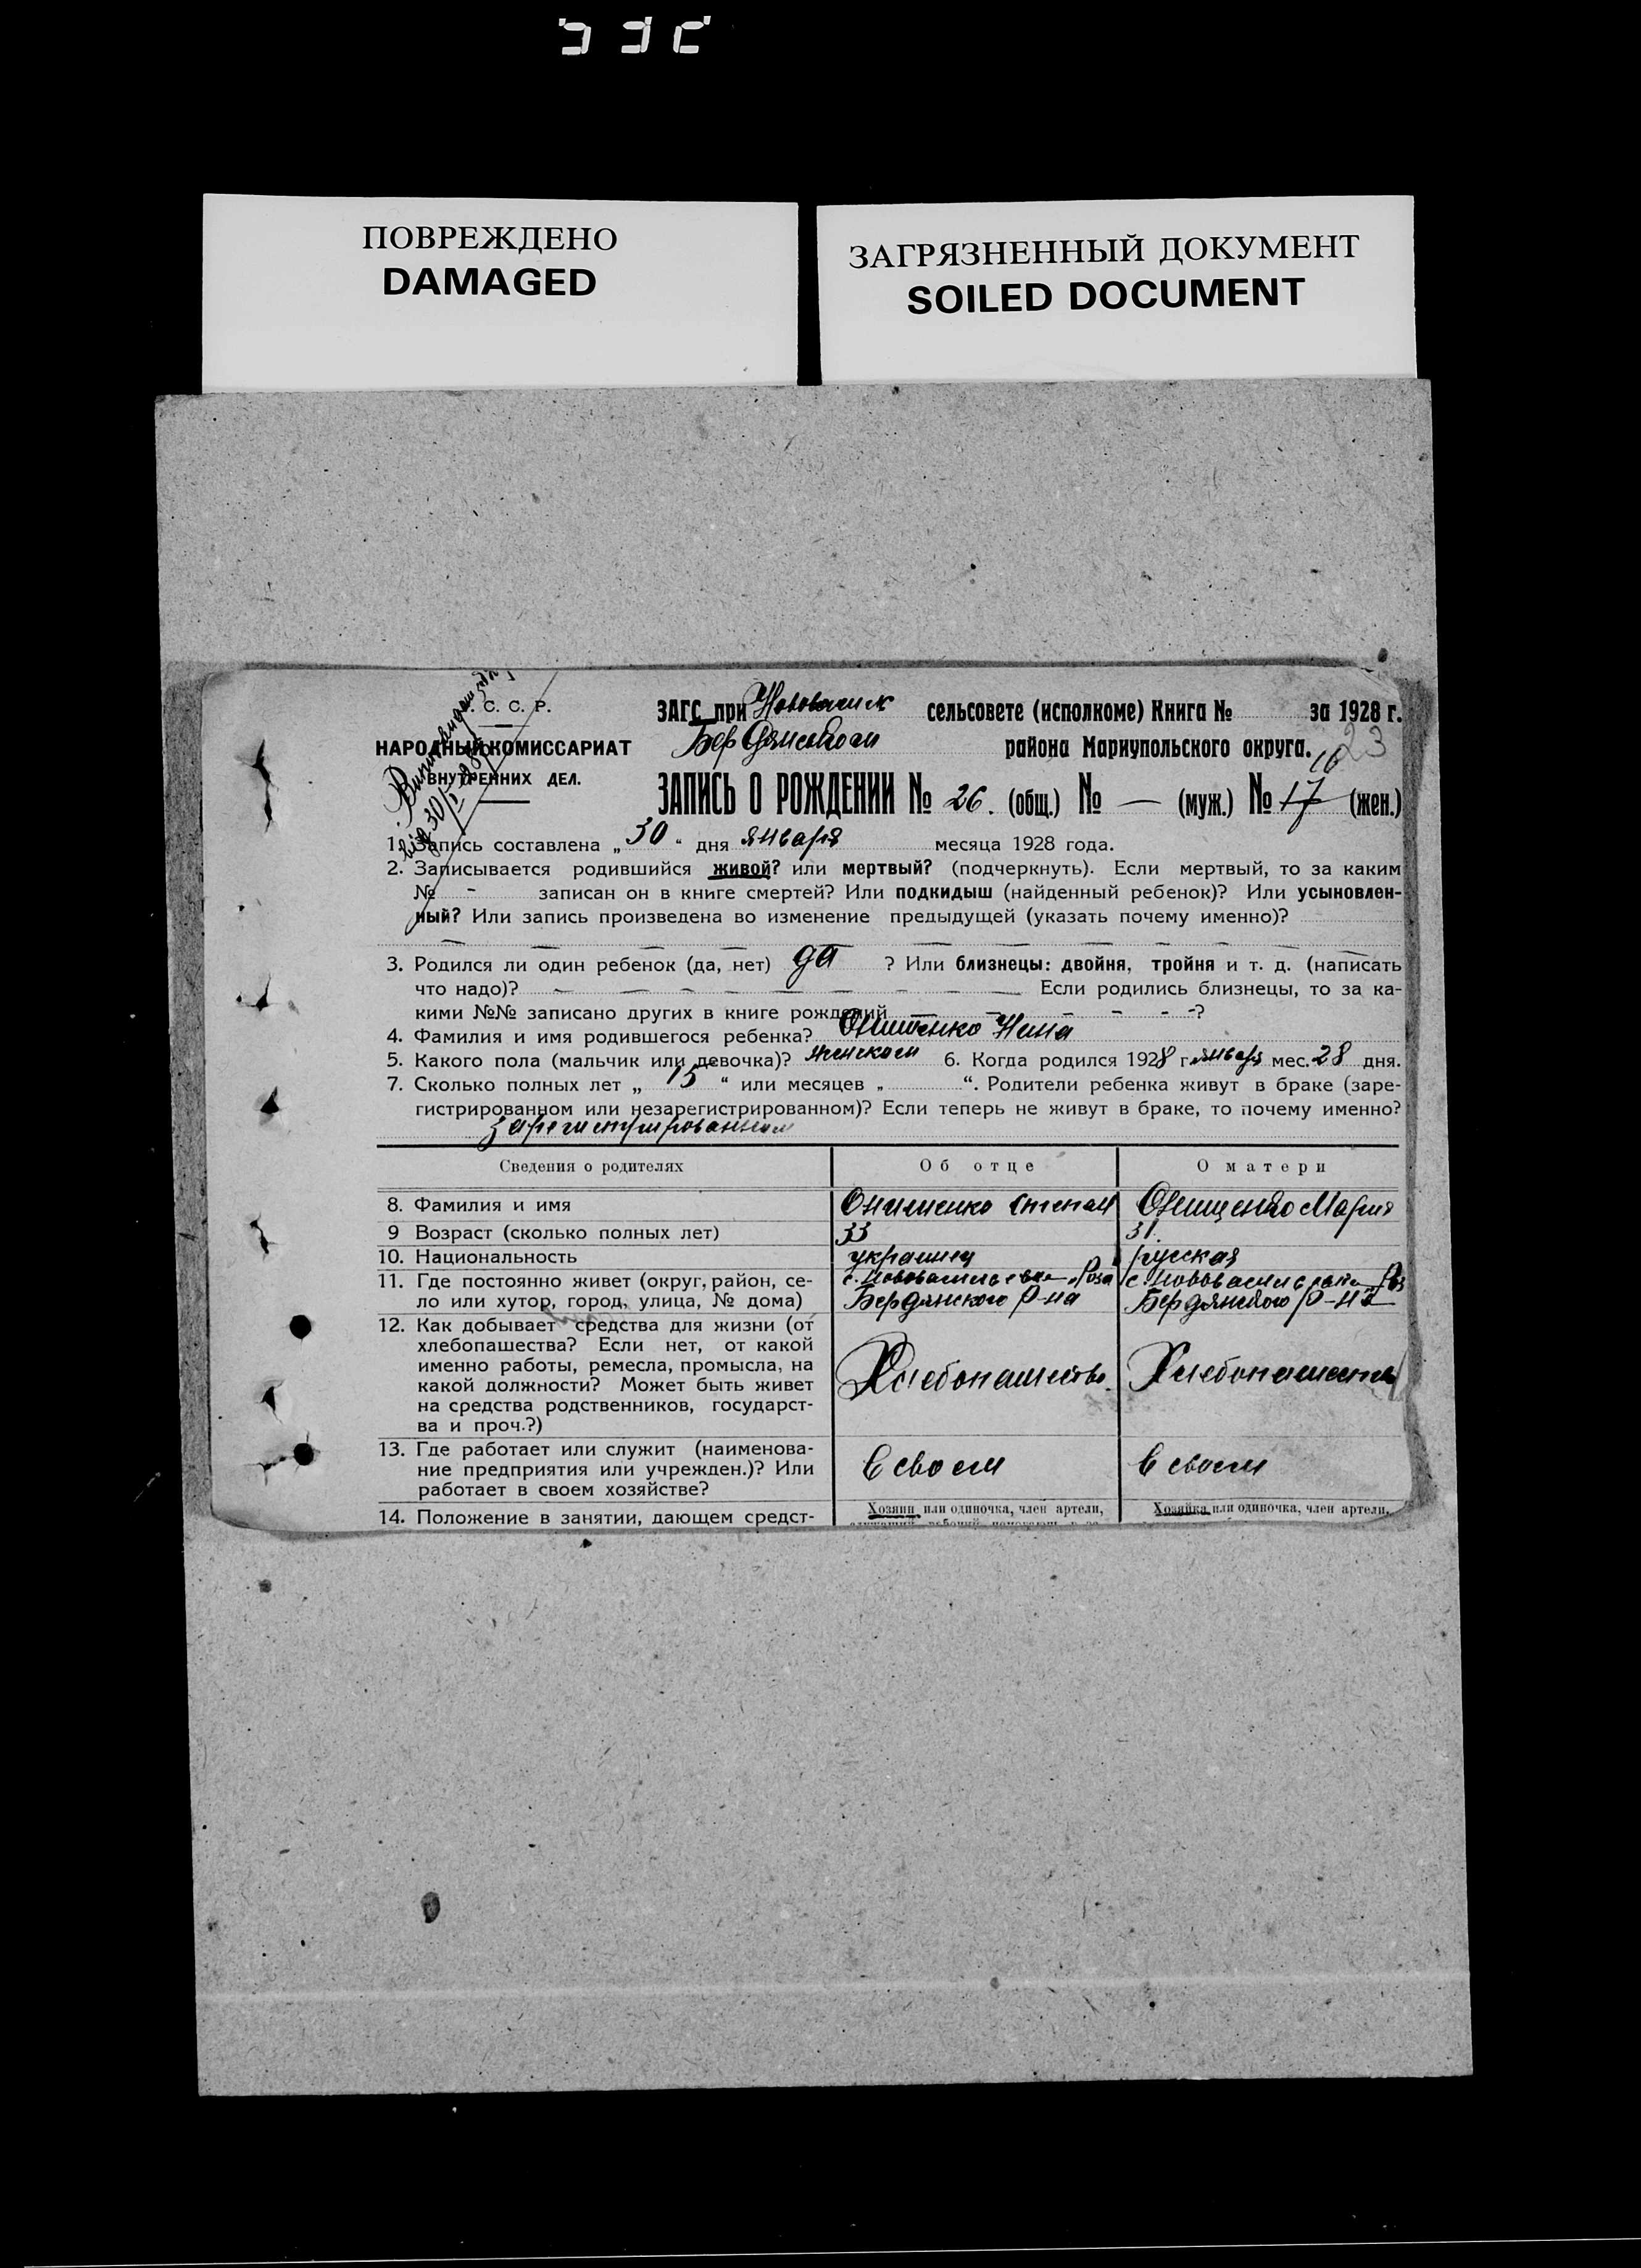 ПОВРЕЖДЕНО
DAMAGED
ЗАГРЯЗНЕННЫЙ ДОКУМЕНТ
SOILED DOCUMENT
С. С. Р.
НАРОДНЫЙ КОМИССАРИАТ
ВНУТРЕННИХ ДЕЛ.
ЗАГС при Нововасил сельсовете (исполкоме) Книга № за 1928 г.
Бердянского района Мариупольского округа. 23
16
ЗАПИСЬ О РОЖДЕНИИ № 26. (общ.) № — (муж.) № 17 (жен.)
1. Запись составлена „30" дня января месяца 1928 года.
2. Записывается родившийся живой? или мертвый? (подчеркнуть). Если мертвый, то за каким
№ - записан он в книге смертей? Или подкидыш (найденный ребенок)? Или усыновлен-
ный? Или запись произведена во изменение предыдущей (указать почему именно)?
3. Родился ли один ребенок (да, нет) да ? Или близнецы: двойня, тройня и т. д. (написать
что надо)? Если родились близнецы, то за ка-
кими №№ записано других в книге рождений - ?
4. Фамилия и имя родившегося ребенка? Онищенко Нина
5. Какого пола (мальчик или девочка)? женском 6. Когда родился 1928 г. январ мес. 28 дня.
7. Сколько полных лет „ 15 “ или месяцев „ “. Родители ребенка живут в браке (заре-
гистрированном или незарегистрированном)? Если теперь не живут в браке, то почему именно?
зарегистрированным
Сведения о родителях
Об отце
О матери
8. Фамилия и имя
Онищенко Степан
Онищенко Мария
9 Возраст (сколько полных лет)
33
31.
10. Национальность
украинец
русская
11. Где постоянно живет (округ, район, се-
ло или хутор, город, улица, № дома)
с. Нововасильевка
Бердянского р-на
с. Нововасильевка
Бердянского р-на
12. Как добывает средства для жизни (от
хлебопашества? Если нет, от какой
именно работы, ремесла, промысла, на
какой должности? Может быть живет
на средства родственников, государст-
ва и проч.?)
Хлебопашество.
Хлебопашеств
13. Где работает или служит (наименова-
ние предприятия или учрежден.)? Или
работает в своем хозяйстве?
в своем
в своем
14. Положение в занятии, дающем средст-
Хозяин или одиночка, член артели,
Хозяйка или одиночка, член артели,